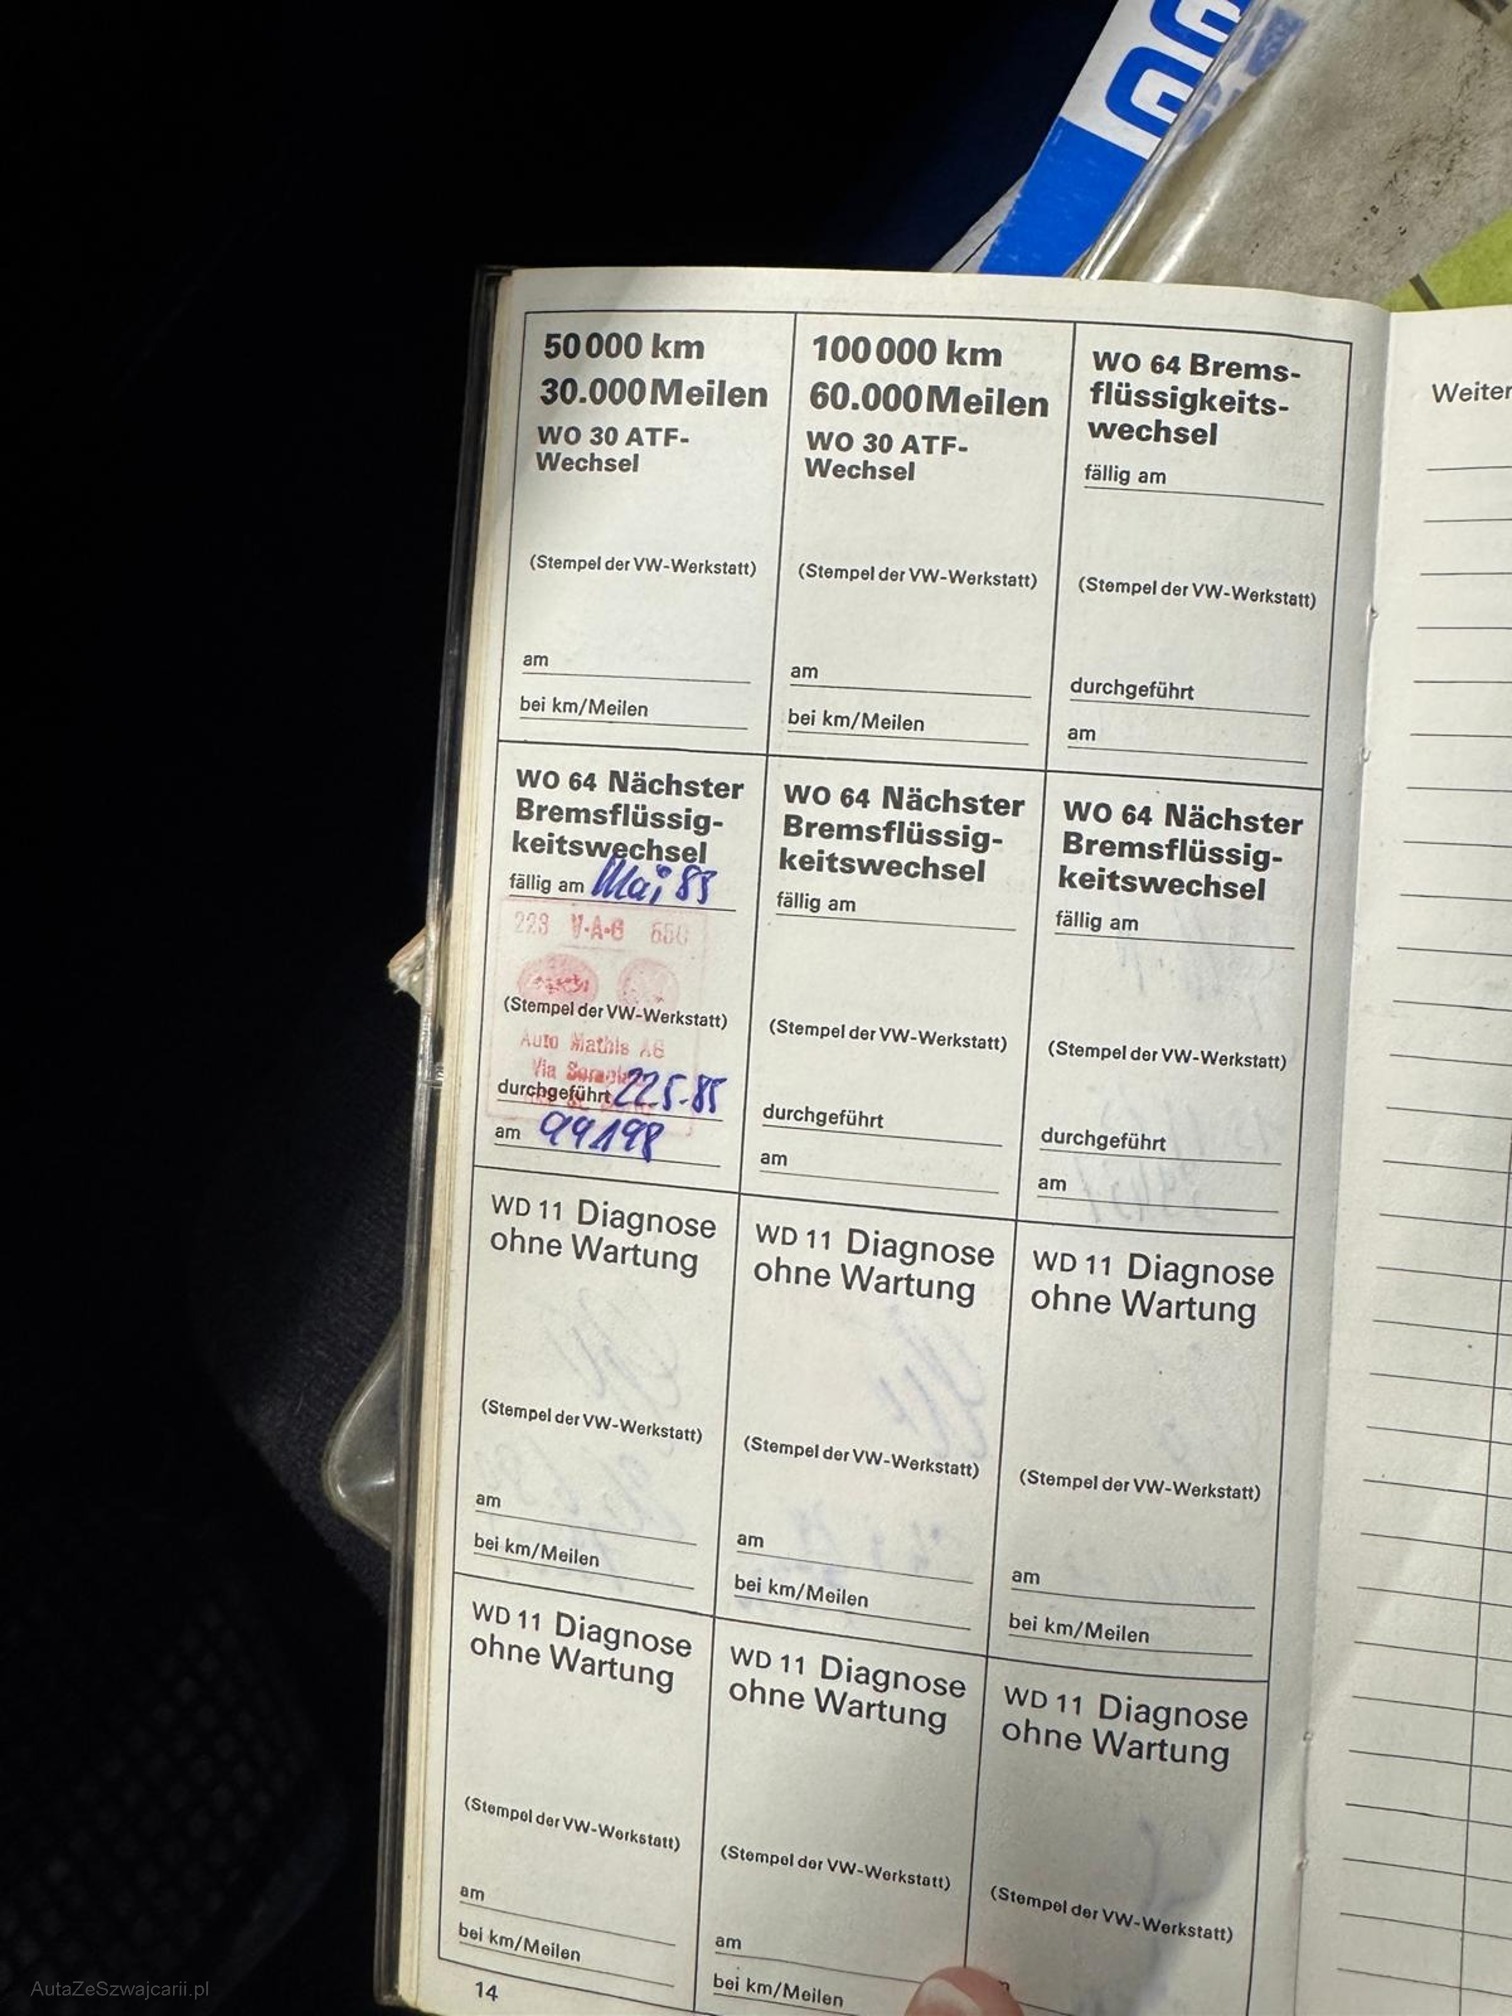 50 000 km
30.000 Meilen
WO 30 ATF-
Wechsel
(Stempel der VW-Werkstatt)
am
bei km/Meilen
100 000 km
60.000 Meilen
WO 30 ATF-
Wechsel
(Stempel der VW-Werkstatt)
am
bei km/Meilen
WO 64 Brems-
flüssigkeits-
wechsel
fällig am
(Stempel der VW-Werkstatt)
durchgeführt
am
WO 64 Nächster
Bremsflüssig-
keitswechsel
fällig am Mai 85
223 V·A·G
(Stempel der VW-Werkstatt)
Auto Mathis AG
Via
durchgeführt 22.5.85
am 99198
WO 64 Nächster
Bremsflüssig-
keitswechsel
fällig am
(Stempel der VW-Werkstatt)
durchgeführt
am
WO 64 Nächster
Bremsflüssig-
keitswechsel
fällig am
(Stempel der VW-Werkstatt)
durchgeführt
am
WD 11 Diagnose
ohne Wartung
(Stempel der VW-Werkstatt)
am
bei km/Meilen
WD 11 Diagnose
ohne Wartung
(Stempel der VW-Werkstatt)
am
bei km/Meilen
WD 11 Diagnose
ohne Wartung
(Stempel der VW-Werkstatt)
am
bei km/Meilen
WD 11 Diagnose
ohne Wartung
(Stempel der VW-Werkstatt)
am
bei km/Meilen
WD 11 Diagnose
ohne Wartung
(Stempel der VW-Werkstatt)
am
bei km/Meilen
WD 11 Diagnose
ohne Wartung
(Stempel der VW-Werkstatt)
14
Weiter
AutaZeSzwajcarii.pl